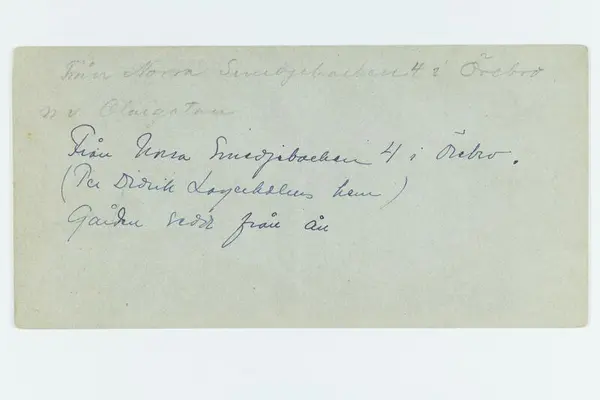 Från Norra Smedjebacken 4 i Örebro
nv Olaigatan
Från Norra Smedjebacken 4 i Örebro.
(Per Didrik Lagerholms hem)
Gården sedd från ån